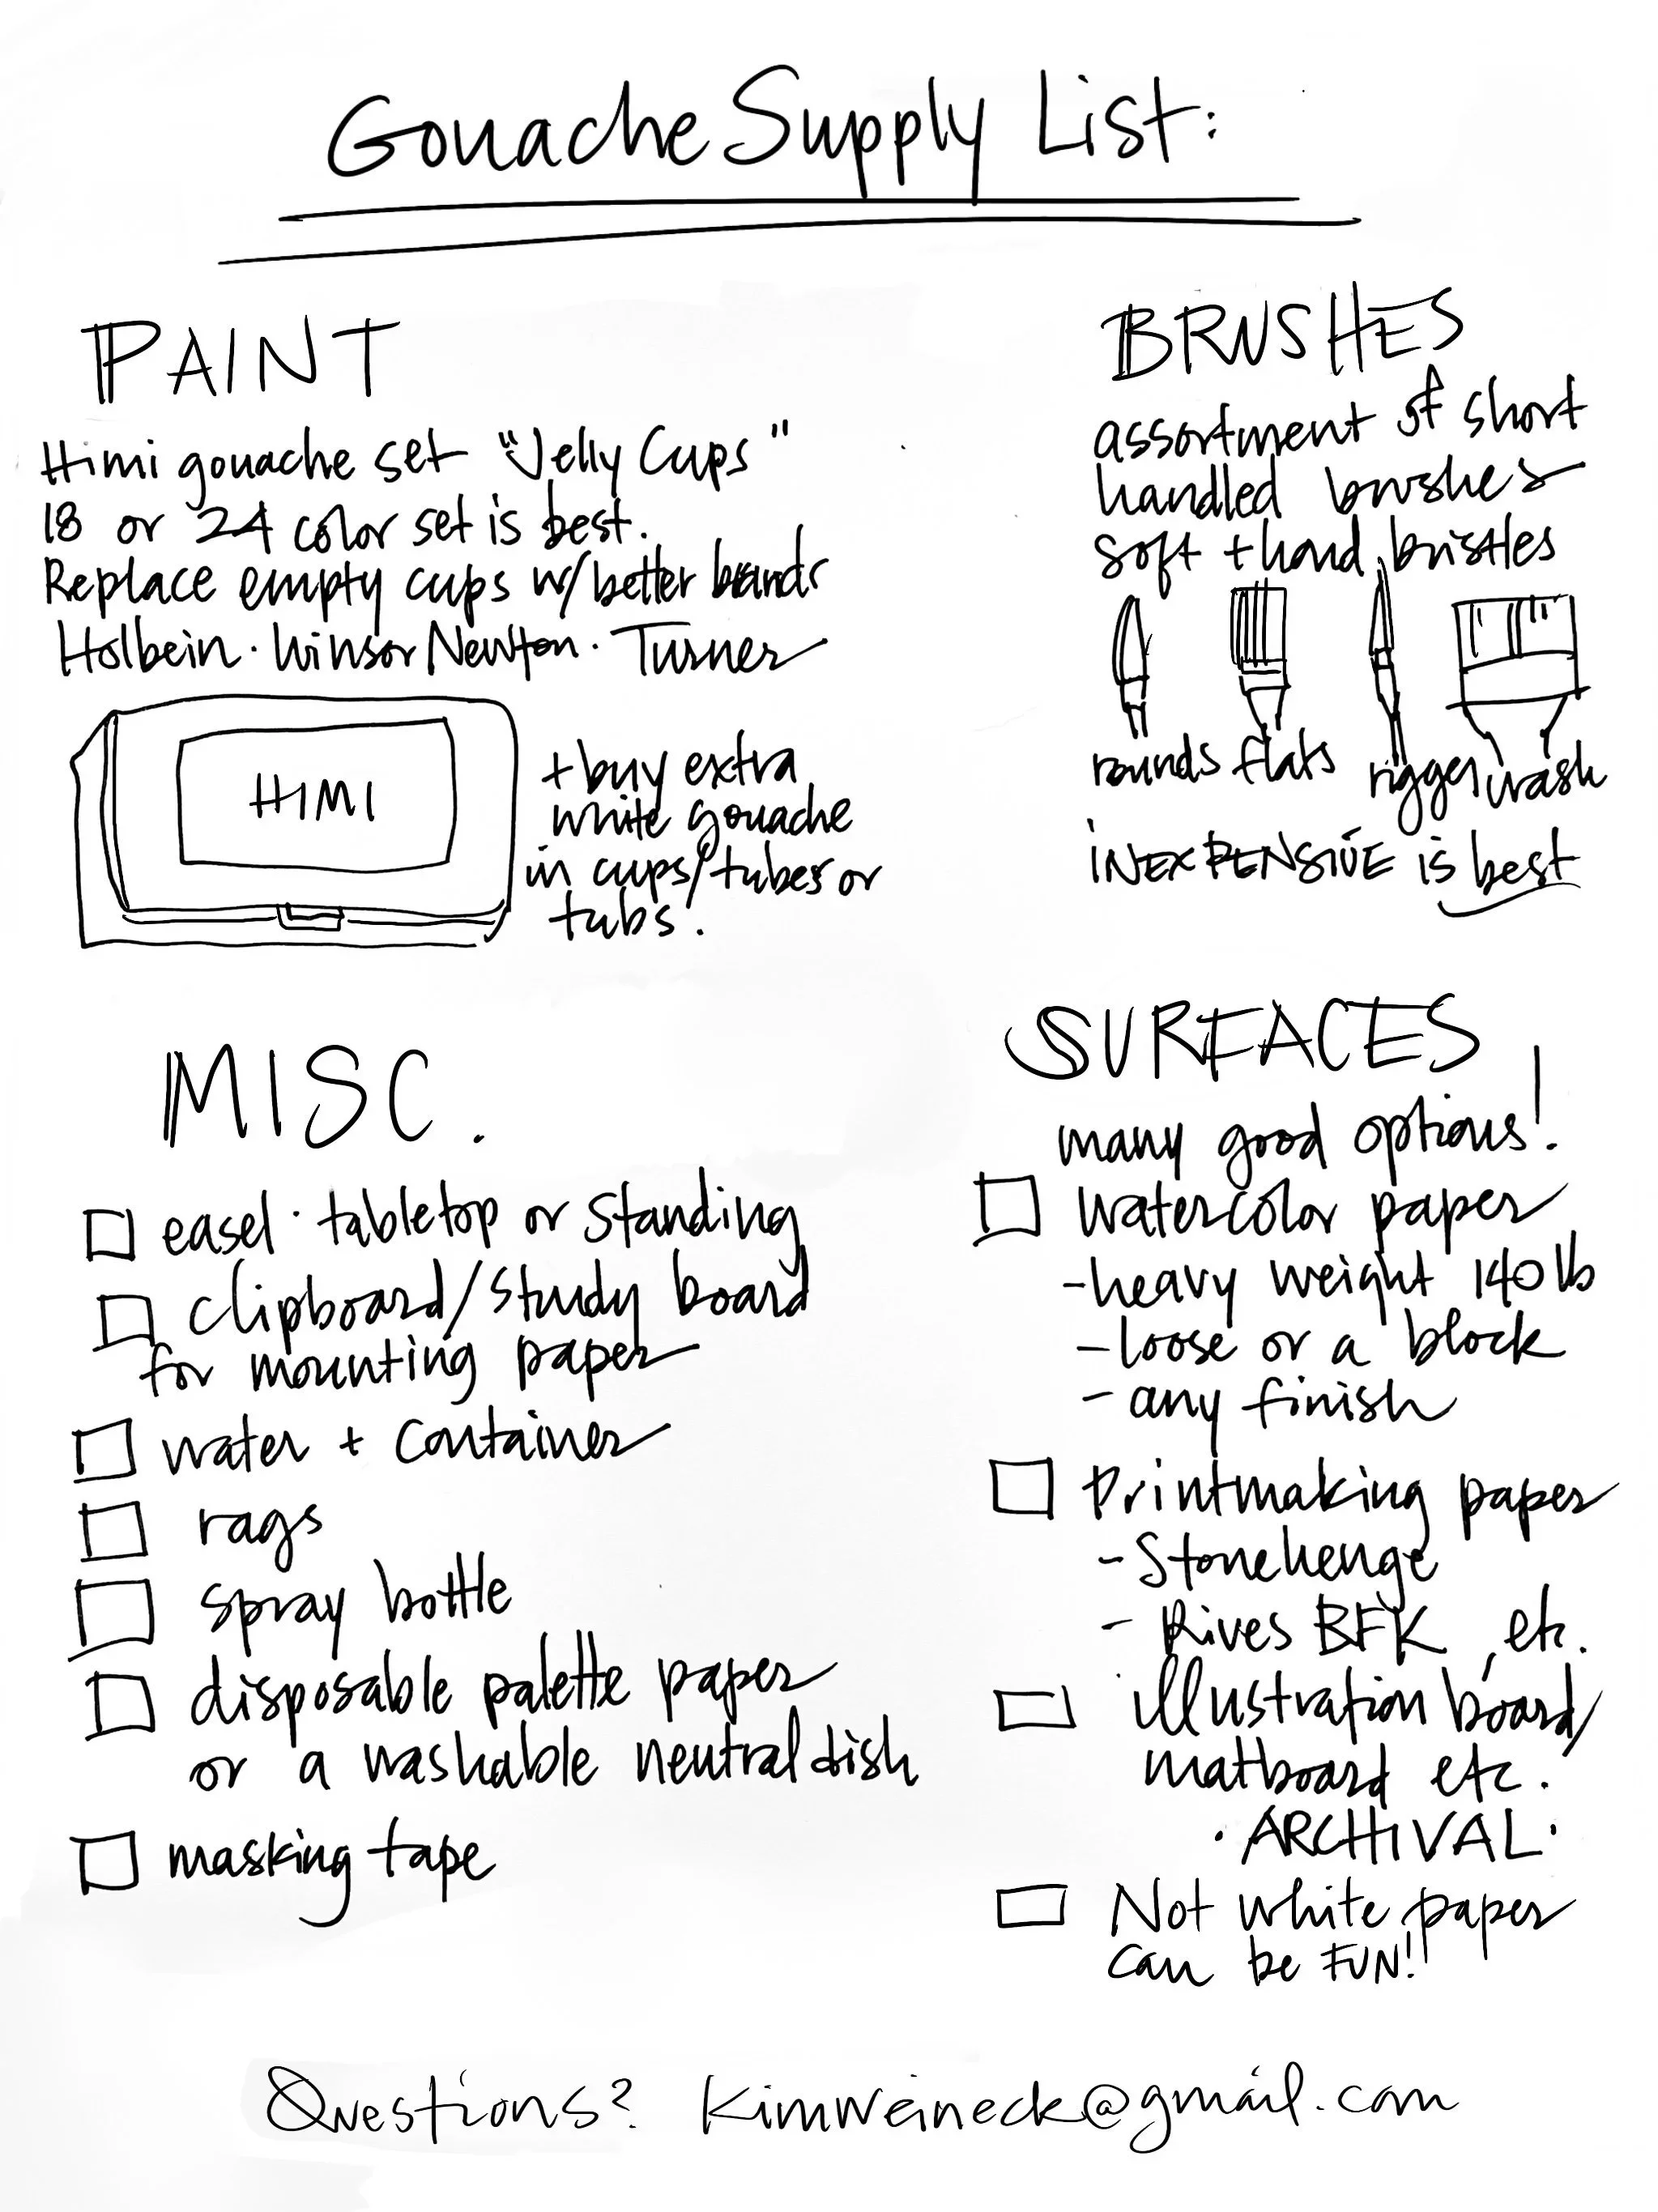 Gouache Supply List:
PAINT
Himi gouache set "Jelly Cups"
18 or 24 color set is best.
Replace empty cups w/better brands
Holbein · Winsor Newton · Turner
HIMI
+buy extra
white gouache
in cups/tubes or
tubs.
BRUSHES
assortment of short
handled brushes
soft + hard bristles
rounds flats rigger wash
INEXPENSIVE is best
MISC.
easel · tabletop or standing
clipboard/study board
for mounting paper
water + container
rags
spray bottle
disposable palette paper
or a washable neutral dish
masking tape
SURFACES
many good options!
watercolor paper
-heavy weight 140 lb
-loose or a block
- any finish
Printmaking paper
- Stonehenge
- Rives BFK, etc.
illustration board/
matboard etc.
· ARCHIVAL ·
Not white paper
can be FUN!
Questions? kimweineck@gmail.com